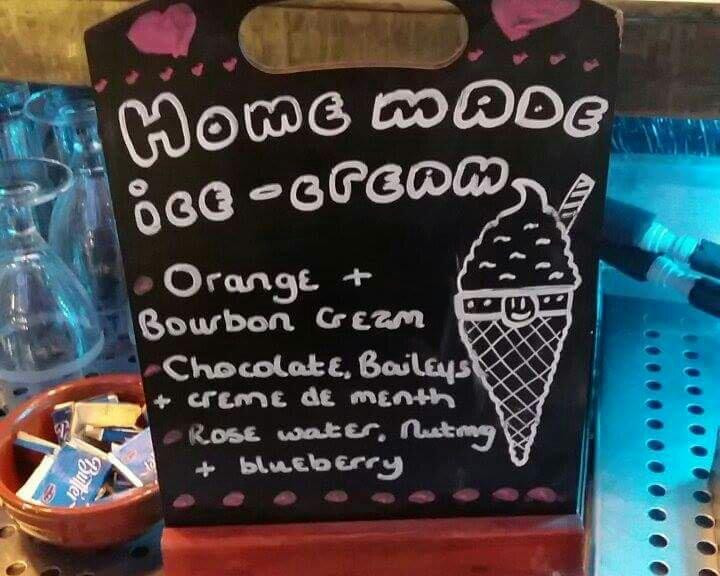 Home made
ice-cream
Orange +
Bourbon Cream
Chocolate, Baileys
+ creme de menth
Rose water, Nutmg
+ blueberry
Butter